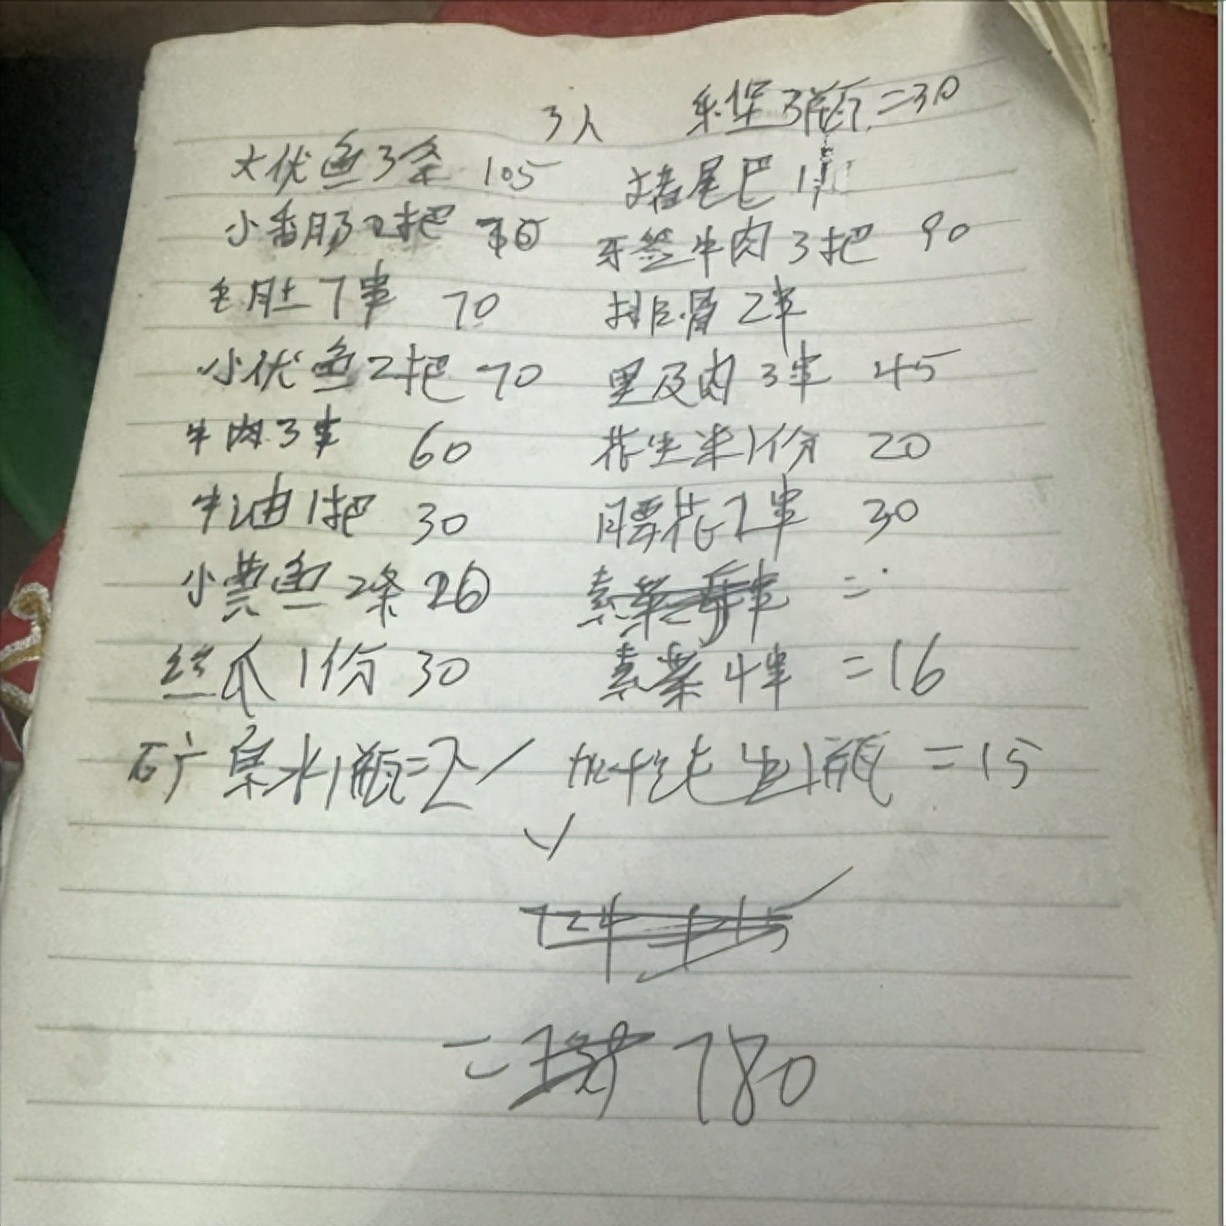 3人 乐堡3瓶=30
大优鱼3条 105 猪尾巴1
小香肠2把 牙签牛肉3把 90
毛肚7串 70 排骨2串
小优鱼2把 70 里及肉3串 45
牛肉3串 60 花生米1份 20
牛油1把 30 腰花2串 30
小黄鱼2条 26 素菜 串 =
丝瓜1份 30 素菜4串 =16
矿泉水1瓶=2 加 1瓶 =15
= 780